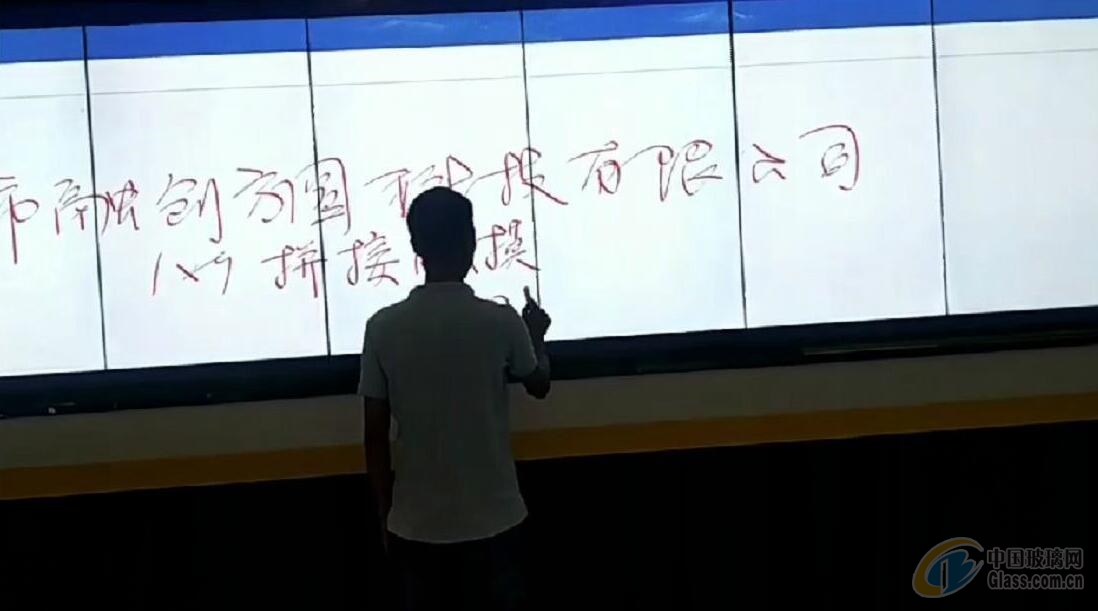 市融创方圆科技有限公司
1×9拼接触摸
中国玻璃网
Glass.com.cn